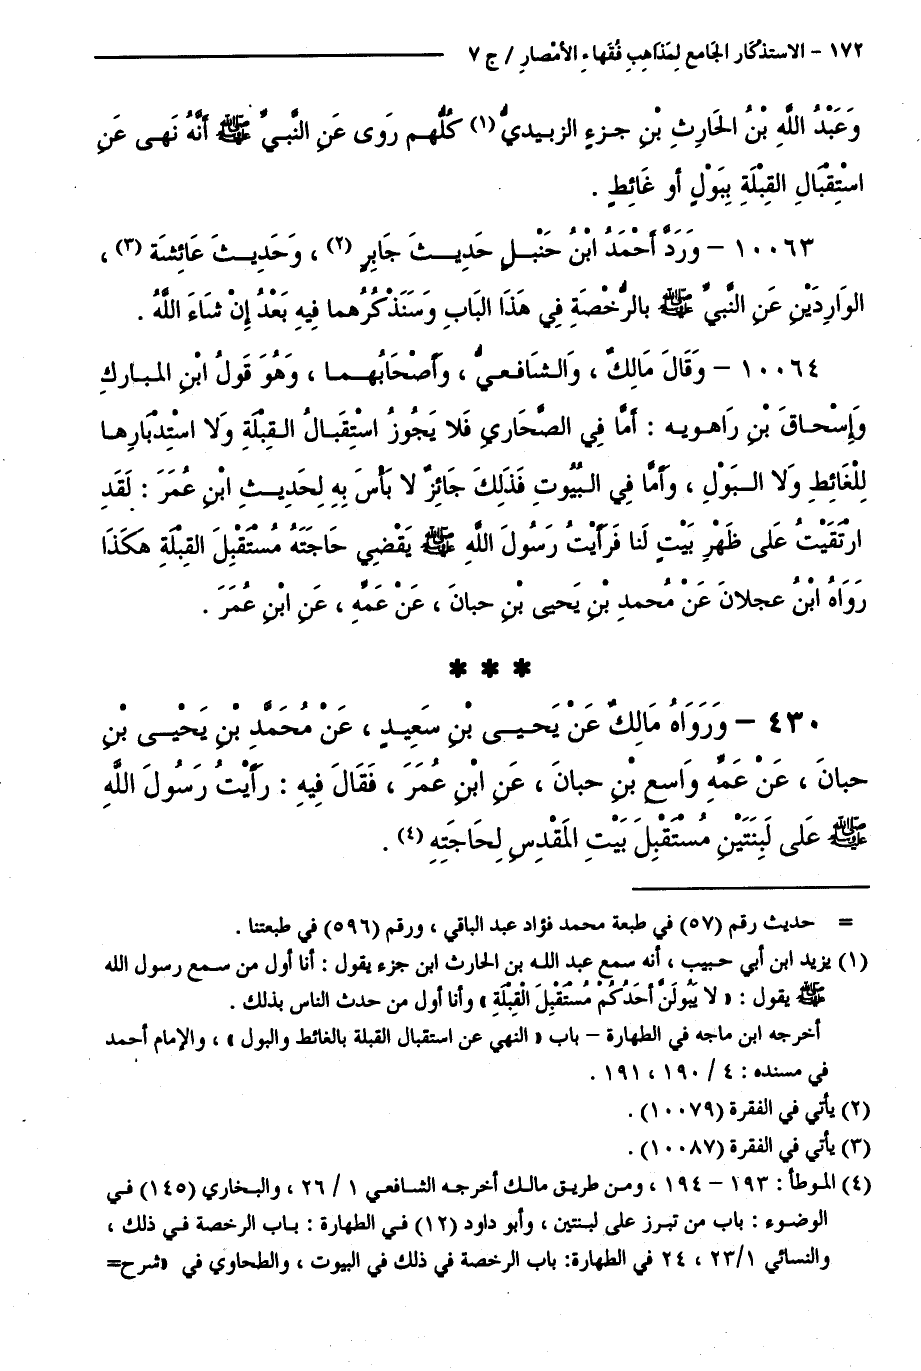 ١٧٢ - الاستذكار الجامع لمَذاهِبِ فُقَهاءِ الأمْصارِ / ج ٧
وَعَبْدُ اللَّهِ بْنُ الحَارِثِ بْنِ جزءٍ الزبيديُّ (١) كُلُّهم رَوَى عَنِ النَّبيِّ ﷺ أَنَّهُ نَهى عَنِ
اسْتِقْبَالِ القِبْلَةِ بِبَوْلٍ أو غَائِطٍ .
١٠٠٦٣ - وَرَدَّ أَحْمَدُ ابْنُ حَنْبَلٍ حَدِيثَ جَابِرٍ (٢) ، وَحَدِيثَ عَائِشَةَ (٣) ،
الوَارِدَيْنِ عَنِ النَّبيِّ ﷺ بالرُّخْصَةِ فِي هَذَا البَابِ وَسَنَذْكُرُهما فِيهِ بَعْدُ إِنْ شَاءَ اللَّهُ .
١٠٠٦٤ - وَقَالَ مَالِكٌ ، وَالشافعيُّ ، وَأَصْحَابُهما ، وَهُوَ قَولُ ابْنِ المباركِ
وَإِسْحاقَ بْنِ رَاهويه : أمَّا فِي الصَّحَارِي فَلا يَجُوزُ اسْتِقْبَالُ القِبْلَةِ وَلَا اسْتِدْبَارِها
لِلْغَائِطِ وَلَا البَوْلِ ، وَأَمَّا فِي البُيُوتِ فَذَلِكَ جَائِزٌ لا بَأْسَ بِهِ لِحَدِيثِ ابْنِ عُمَرَ : لَقَدِ
ارْتَقَيْتُ عَلى ظَهْرِ بَيْتٍ لَنا فَرَأَيْتُ رَسُولَ اللَّهِ ﷺ يَقْضِي حَاجَتَهُ مُسْتَقْبِلَ القِبْلَةِ هكَذَا
رَوَاهُ ابْنُ عجلانَ عَنْ مُحمدِ بْنِ يَحيى بْنِ حبانَ ، عَنْ عَمِّهِ ، عَنِ ابْنِ عُمَرَ .
* * *
٤٣٠ - وَرَوَاهُ مَالِكٌ عَنْ يَحيى بْنِ سَعِيدٍ ، عَنْ مُحَمَّدِ بْنِ يَحْيى بْنِ
حبانَ ، عَنْ عَمِّهِ وَاسعِ بْنِ حبانَ ، عَنِ ابْنِ عُمَرَ ، فَقَالَ فِيهِ : رَأَيْتُ رَسُولَ اللَّهِ
ﷺ عَلى لَبِنَتَيْنِ مُسْتَقْبِلَ بَيْتِ المَقْدِسِ لِحَاجَتِهِ (٤) .
= حديث رقم (٥٧) في طبعة محمد فؤاد عبد الباقي ، ورقم (٥٩٦) في طبعتنا .
(١) يزيد ابن أبي حبيب ، أنه سمع عبد الله بن الحارث ابن جزء يقول : أنا أول من سمع رسول الله
ﷺ يقول : « لا يَبُولَنَّ أَحَدُكُمْ مُسْتَقْبِلَ القِبْلَةِ » وأنا أول من حدث الناس بذلك .
أخرجه ابن ماجه في الطهارة - باب « النهي عن استقبال القبلة بالغائط والبول » ، والإمام أحمد
في مسنده : ٤ / ١٩٠ ، ١٩١ .
(٢) يأتي في الفقرة (١٠٠٧٩) .
(٣) يأتي في الفقرة (١٠٠٨٧) .
(٤) الموطأ : ١٩٣ - ١٩٤ ، ومن طريق مالك أخرجه الشافعي ١ / ٢٦ ، والبخاري (١٤٥) في
الوضوء : باب من تبرز على لبنتين ، وأبو داود (١٢) في الطهارة : باب الرخصة في ذلك ،
والنسائي ٢٣/١ ، ٢٤ في الطهارة: باب الرخصة في ذلك في البيوت ، والطحاوي في «شرح=